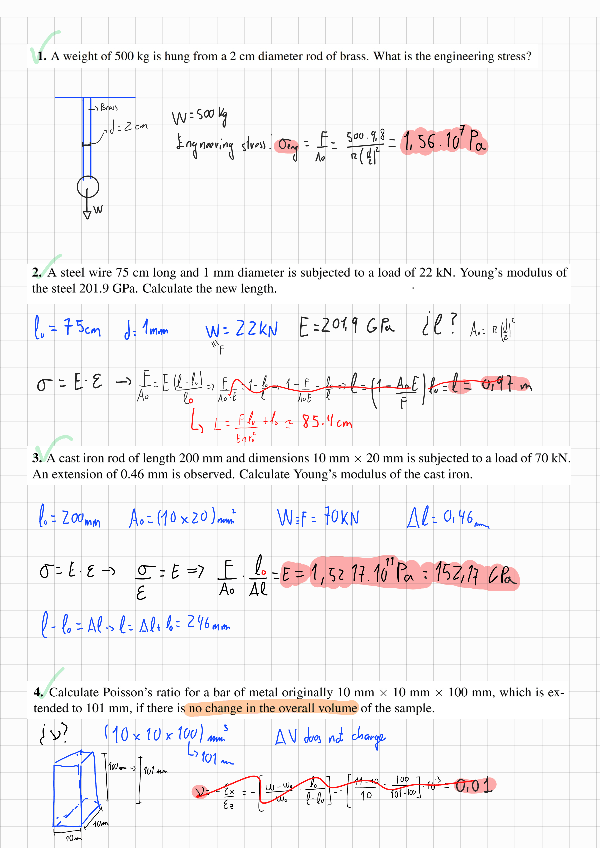 1. A weight of 500 kg is hung from a 2 cm diameter rod of brass. What is the engineering stress?
Brass
d = 2 cm
W
W = 500 kg
Engineering stress: σeng = F/A₀ = 500·9,8/π(d/2)² = 1,56·10⁷ Pa
2. A steel wire 75 cm long and 1 mm diameter is subjected to a load of 22 kN. Young's modulus of
the steel 201.9 GPa. Calculate the new length.
l₀ = 75cm d = 1mm W = 22KN E = 201,9 GPa ¿l? A₀ = π(d/2)²
F
σ = E·ε → F/A₀ = E (l-l₀)/l₀ = 0,97 m
= 85.4 cm
3. A cast iron rod of length 200 mm and dimensions 10 mm × 20 mm is subjected to a load of 70 kN.
An extension of 0.46 mm is observed. Calculate Young's modulus of the cast iron.
l₀ = 200mm A₀ = (10×20) mm² W=F= 70KN Δl = 0,46 mm
σ = E·ε → σ/ε = E => F/A₀ · l₀/Δl = E = 1,5217·10¹¹ Pa = 152,17 GPa
l - l₀ = Δl → l = Δl + l₀ = 246 mm
4. Calculate Poisson's ratio for a bar of metal originally 10 mm × 10 mm × 100 mm, which is ex-
tended to 101 mm, if there is no change in the overall volume of the sample.
¿ν? (10×10×100) mm³ ΔV does not change
↳ 101 mm
100mm → 101 mm
10mm
10mm
ν = εx/εz = 0,01